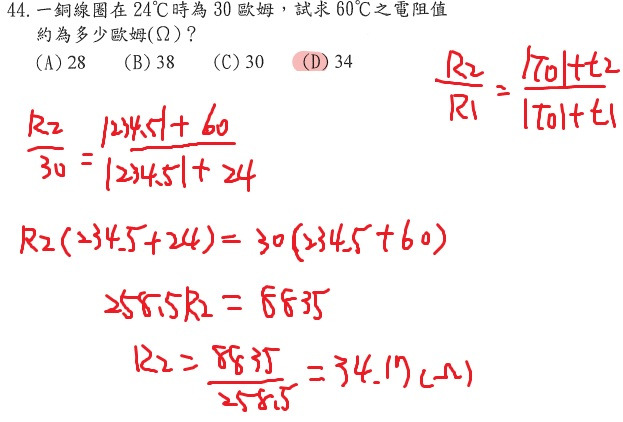 44. 一銅線圈在 24℃時為 30 歐姆，試求 60℃之電阻值
約為多少歐姆(Ω)？
(A) 28 (B) 38 (C) 30 (D) 34
R2/R1 = |T0|+t2/|T0|+t1
R2/30 = |234.5|+60/|234.5|+24
R2(234.5+24)=30(234.5+60)
258.5R2=8835
R2=8835/258.5=34.17(Ω)